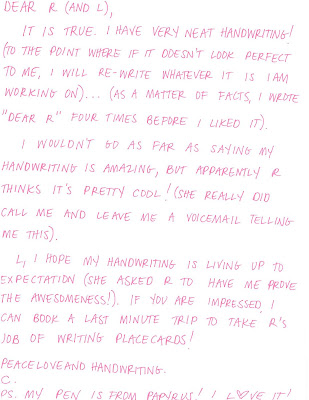 DEAR R (AND L),
IT IS TRUE. I HAVE VERY NEAT HANDWRITING!
(TO THE POINT WHERE IF IT DOESN'T LOOK PERFECT
TO ME, I WILL RE-WRITE WHATEVER IT IS I AM
WORKING ON)... (AS A MATTER OF FACTS, I WROTE
"DEAR R" FOUR TIMES BEFORE I LIKED IT).
I WOULDN'T GO AS FAR AS SAYING MY
HANDWRITING IS AMAZING, BUT APPARENTLY R
THINKS IT'S PRETTY COOL! (SHE REALLY DID
CALL ME AND LEAVE ME A VOICEMAIL TELLING
ME THIS).
L, I HOPE MY HANDWRITING IS LIVING UP TO
EXPECTATION (SHE ASKED R TO HAVE ME PROVE
THE AWESOMENESS!). IF YOU ARE IMPRESSED, I
CAN BOOK A LAST MINUTE TRIP TO TAKE R'S
JOB OF WRITING PLACECARDS!
PEACELOVEAND HANDWRITING.
C.
PS. MY PEN IS FROM PAPYRUS! I L♡VE IT!